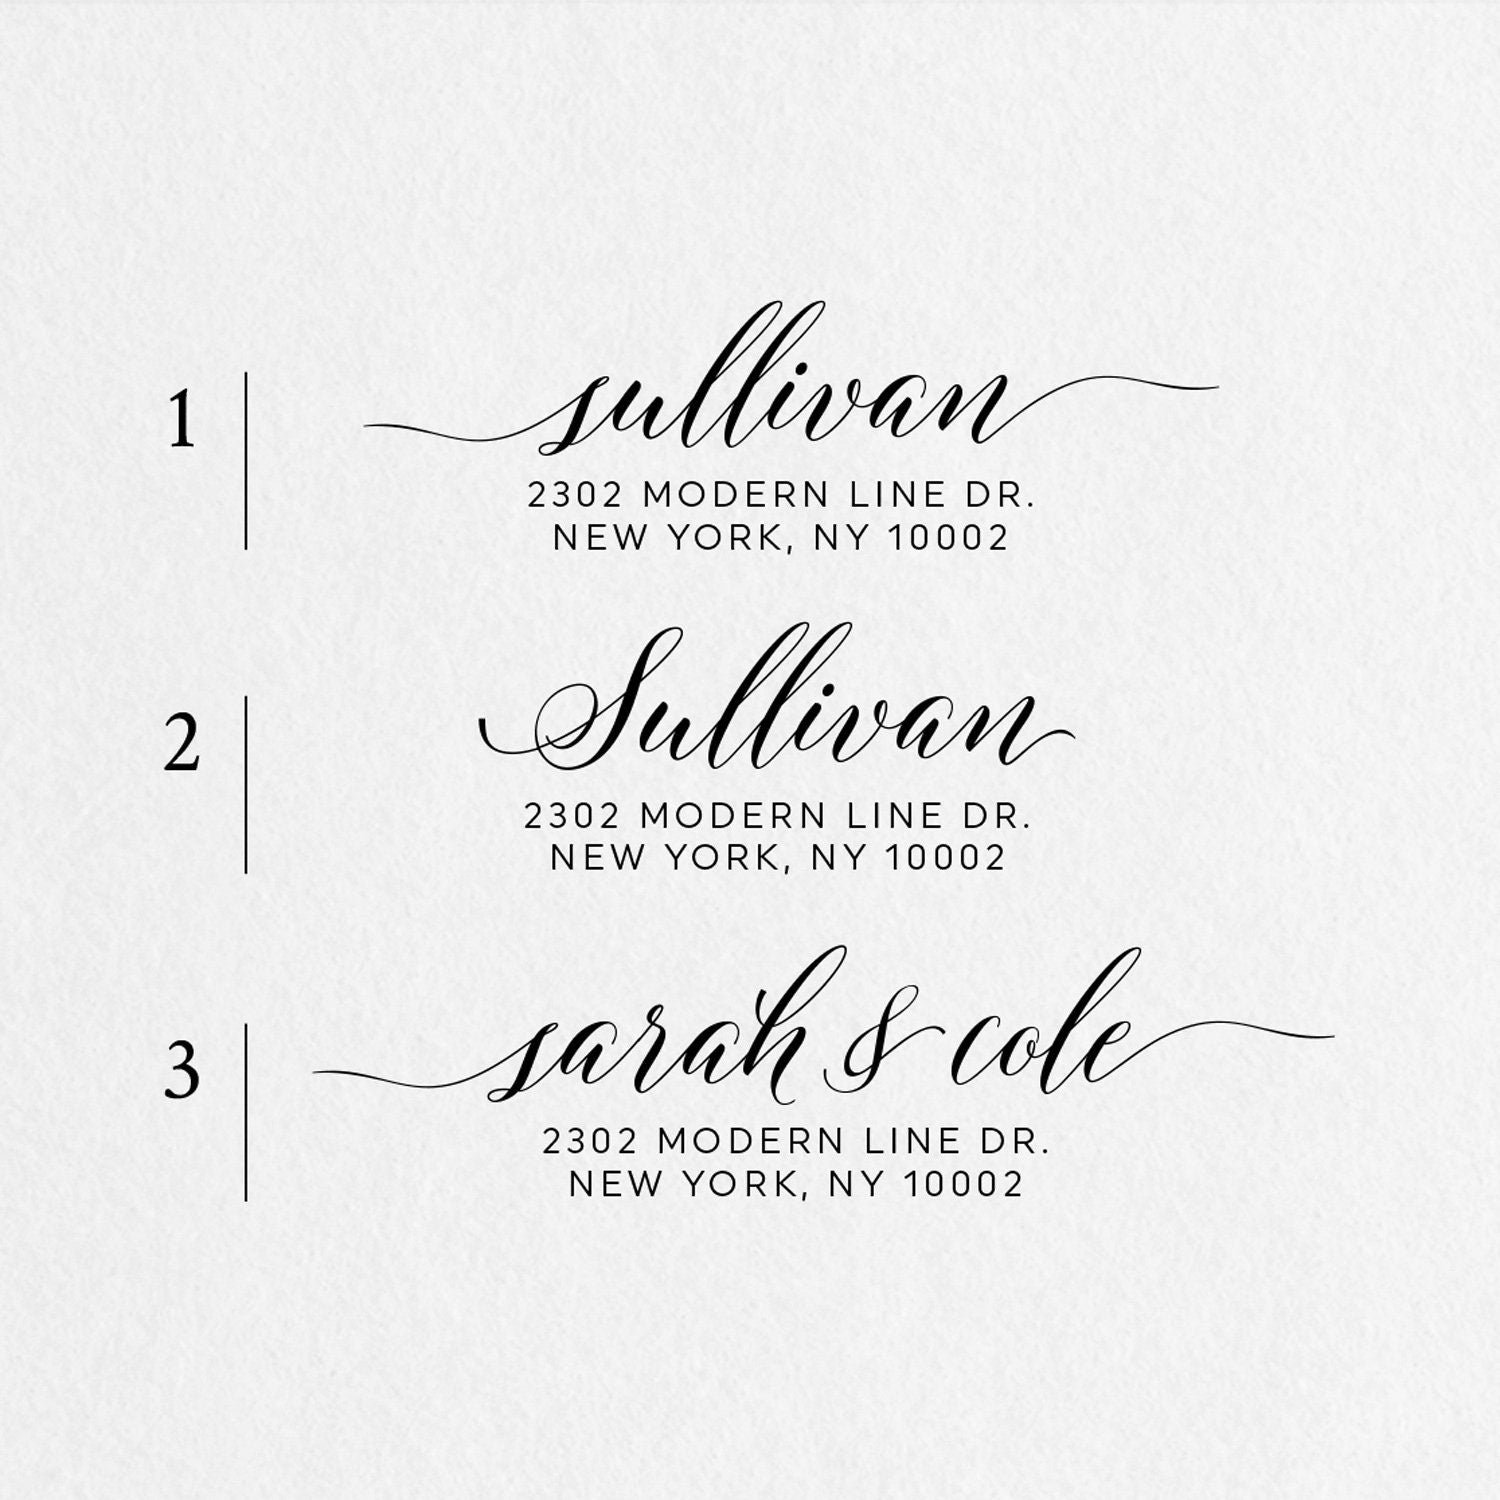 1
sullivan
2302 MODERN LINE DR.
NEW YORK, NY 10002
2
Sullivan
2302 MODERN LINE DR.
NEW YORK, NY 10002
3
sarah & cole
2302 MODERN LINE DR.
NEW YORK, NY 10002